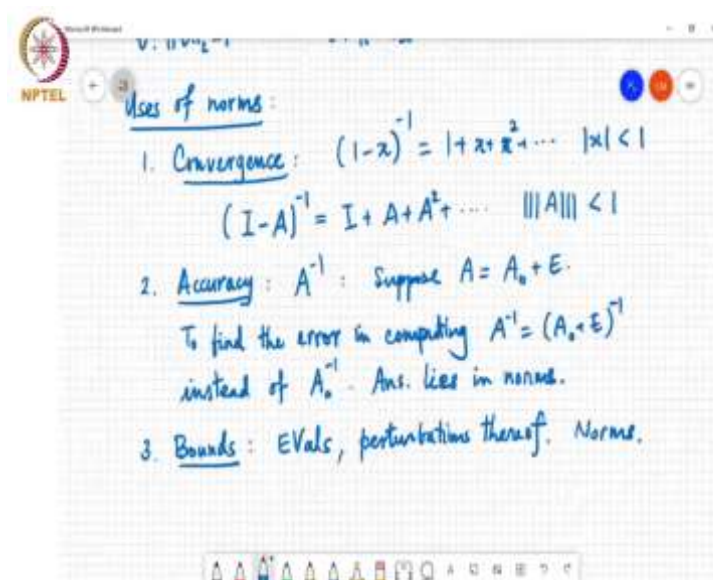 NPTEL
Uses of norms:
1. Convergence: (1-x)⁻¹ = 1+x+x²+⋯ |x| < 1
(I-A)⁻¹ = I + A + A² + ⋯ |||A||| < 1
2. Accuracy: A⁻¹: Suppose A = A₀ + E.
To find the error in computing A⁻¹ = (A₀+E)⁻¹
instead of A₀⁻¹. Ans. lies in norms.
3. Bounds: EVals, perturbations thereof. Norms.